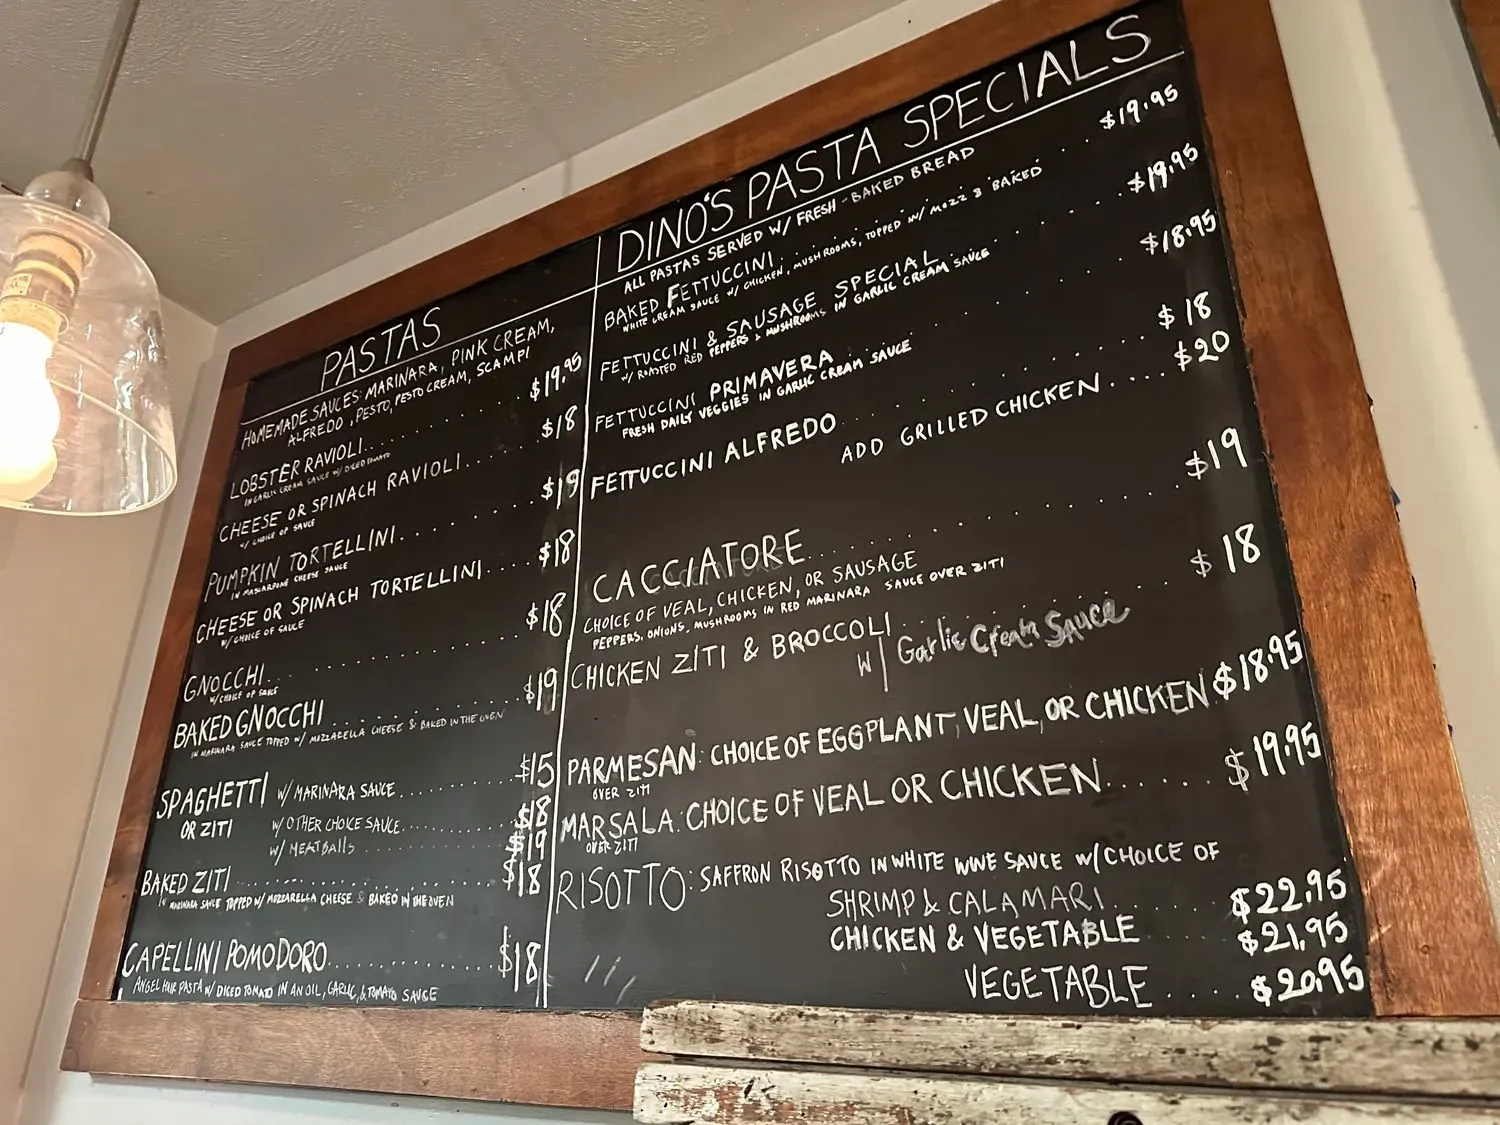 PASTAS
HOMEMADE SAUCES: MARINARA, PINK CREAM,
ALFREDO, PESTO, PESTO CREAM, SCAMPI
LOBSTER RAVIOLI..........$19.95
IN GARLIC CREAM SAUCE W/ DICED TOMATO
CHEESE OR SPINACH RAVIOLI.......$18
W/ CHOICE OF SAUCE
PUMPKIN TORTELLINI..........$19
IN MASCARPONE CHEESE SAUCE
CHEESE OR SPINACH TORTELLINI.....$18
W/ CHOICE OF SAUCE
GNOCCHI..........$18
W/ CHOICE OF SAUCE
BAKED GNOCCHI..........$19
IN MARINARA SAUCE TOPPED W/ MOZZARELLA CHEESE & BAKED IN THE OVEN
SPAGHETTI W/ MARINARA SAUCE........$15
OR ZITI W/ OTHER CHOICE SAUCE........$18
W/ MEATBALLS..........$19
BAKED ZITI..........$18
IN MARINARA SAUCE TOPPED W/ MOZZARELLA CHEESE & BAKED IN THE OVEN
CAPELLINI POMODORO..........$18
ANGEL HAIR PASTA W/ DICED TOMATO IN AN OIL, GARLIC, & TOMATO SAUCE
DINO'S PASTA SPECIALS
ALL PASTAS SERVED W/ FRESH-BAKED BREAD
BAKED FETTUCCINI..........$19.95
WHITE CREAM SAUCE W/ CHICKEN, MUSHROOMS, TOPPED W/ MOZZ & BAKED
FETTUCCINI & SAUSAGE SPECIAL..........$19.95
W/ ROASTED RED PEPPERS & MUSHROOMS IN GARLIC CREAM SAUCE
FETTUCCINI PRIMAVERA..........$18.95
FRESH DAILY VEGGIES IN GARLIC CREAM SAUCE
FETTUCCINI ALFREDO..........$18
ADD GRILLED CHICKEN....$20
CACCIATORE..........$19
CHOICE OF VEAL, CHICKEN, OR SAUSAGE
PEPPERS, ONIONS, MUSHROOMS IN RED MARINARA SAUCE OVER ZITI
CHICKEN ZITI & BROCCOLI..........$18
W/ Garlic Cream Sauce
PARMESAN: CHOICE OF EGGPLANT, VEAL, OR CHICKEN $18.95
OVER ZITI
MARSALA: CHOICE OF VEAL OR CHICKEN......$19.95
OVER ZITI
RISOTTO: SAFFRON RISOTTO IN WHITE WINE SAUCE W/ CHOICE OF
SHRIMP & CALAMARI......$22.95
CHICKEN & VEGETABLE $21.95
VEGETABLE....$20.95